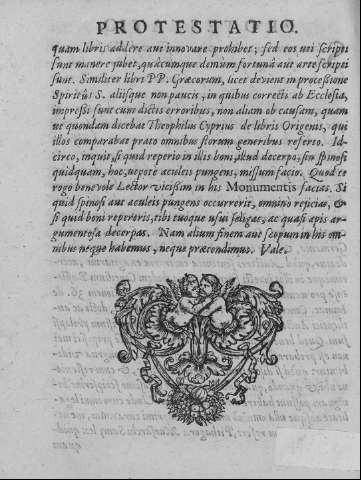 PROTESTATIO.
quam libris addere aut innovare prohibet; sed eos uti scripti
sunt manere jubet, quacumque demùm fortunâ aut arte scripti
sunt. Similiter libri PP. Græcorum, licet devient in processione
Spiritûs S. aliisque non paucis, in quibus correcti ab Ecclesiâ,
impressi sunt cum dictis erroribus, non aliam ob causam, quam
ut quondam dicebat Theophilus Cyprius de libris Origenis, qui
illos comparabat prato omnibus florum generibus referto. Id-
circo, inquit, si quid reperio in illis boni, illud decerpo, sin spinosi
quidquam, hoc, utpote aculeis pungens, missum facio. Quod te
rogo benevole Lector vicissim in his Monumentis facias. Si
quid spinosi aut aculeis pungens occurrerit, omninò rejicias, &
si quid boni repereris, tibi tuoque usui seligas, ac quasi apis ar-
gumentosa decerpas. Nam alium finem aut scopum in his om-
nibus neque habemus, neque prætendimus. Vale.